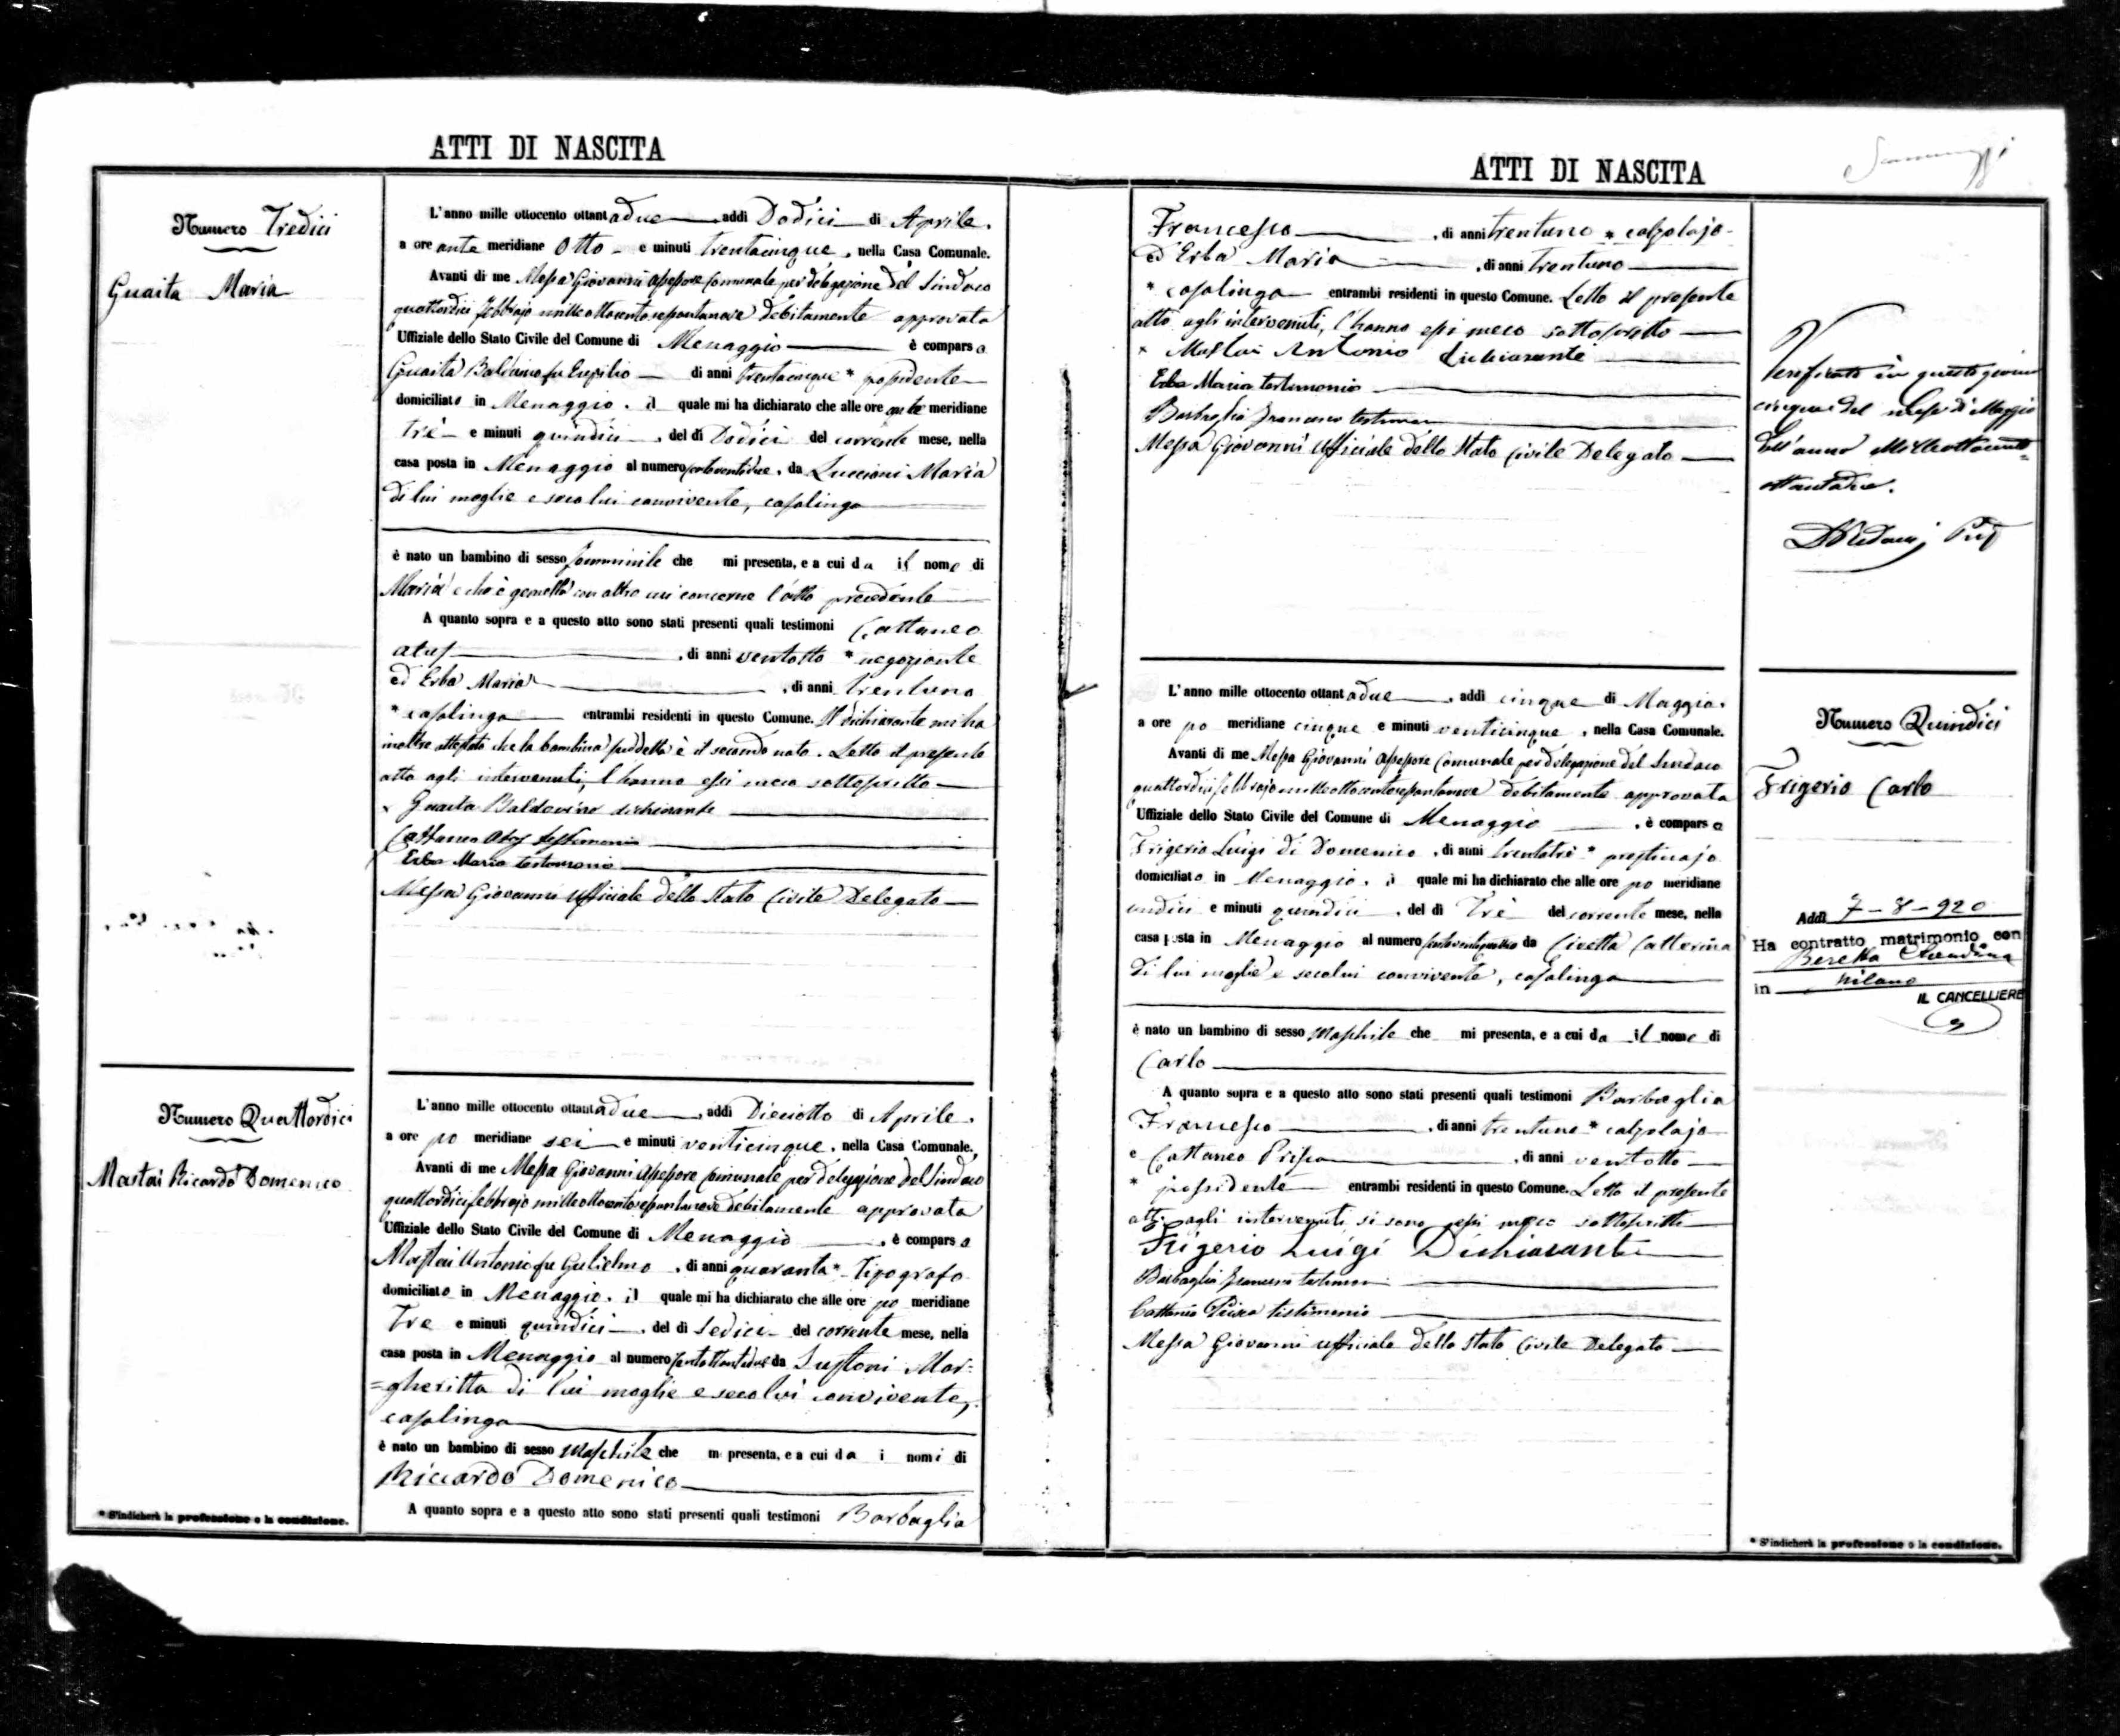 ATTI DI NASCITA
Numero Tredici
Guaita Maria
L'anno mille ottocento ottantadue, addi Dodici di Aprile,
a ore ante meridiane Otto e minuti trentacinque, nella Casa Comunale.
Avanti di me Messa Giovanni Assessore Comunale per delegazione del Sindaco
quattordici febbrajo mille ottocento settantanove debitamente approvata
Uffiziale dello Stato Civile del Comune di Menaggio è comparso
Guaita Baldovino fu Ercilio di anni trentacinque * possidente
domiciliato in Menaggio, il quale mi ha dichiarato che alle ore ante meridiane
trè e minuti quindici, del dì Dodici del corrente mese, nella
casa posta in Menaggio al numero centoventidue, da Luccioni Maria
di lui moglie e seco lui convivente, casalinga
è nato un bambino di sesso femminile che mi presenta, e a cui da il nome di
Maria e che è gemella con altro cui concerne l'atto precedente
A quanto sopra e a questo atto sono stati presenti quali testimoni Cattaneo
, di anni ventotto * negoziante
ed Erba Maria, di anni trentuno
* casalinga entrambi residenti in questo Comune. Il dichiarante mi ha
inoltre attestato che la bambina suddetta è il secondo nato. Letto il presente
atto agli intervenuti, l'hanno essi meco sottoscritto
Guaita Baldovino dichiarante
Cattaneo testimonio
Erba Maria testimonio
Messa Giovanni Ufficiale dello Stato Civile Delegato
Numero Quattordici
Mastai Ricardo Domenico
L'anno mille ottocento ottantadue, addi Dieciotto di Aprile,
a ore po meridiane sei e minuti venticinque, nella Casa Comunale.
Avanti di me Messa Giovanni Assessore Comunale per delegazione del Sindaco
quattordici febbrajo mille ottocento settantanove debitamente approvata
Uffiziale dello Stato Civile del Comune di Menaggio, è comparso
Mastai Antonio fu Gulielmo, di anni quaranta * Tipografo
domiciliato in Menaggio, il quale mi ha dichiarato che alle ore po meridiane
Tre e minuti quindici, del dì Sedici del corrente mese, nella
casa posta in Menaggio al numero centottantadue da Sustoni Mar=
=gheritta di lui moglie e seco lui convivente,
casalinga
è nato un bambino di sesso Maschile che mi presenta, e a cui da i nomi di
Riccardo Domenico
A quanto sopra e a questo atto sono stati presenti quali testimoni Barbaglia
* S'indicherà la professione o la condizione.
ATTI DI NASCITA
Francesco, di anni trentuno * calzolajo
ed Erba Maria, di anni trentuno
* casalinga entrambi residenti in questo Comune. Letto il presente
atto agli intervenuti, l'hanno essi meco sottoscritto
Mastai Antonio dichiarante
Erba Maria testimonio
Barbaglia Francesco testimon
Messa Giovanni Ufficiale dello Stato Civile Delegato
Verificato in questo giorno
cinque del mese di Maggio
dell'anno Milleottocento=
ottantadue.
Numero Quindici
Frigerio Carlo
L'anno mille ottocento ottantadue, addi cinque di Maggio,
a ore po meridiane cinque e minuti venticinque, nella Casa Comunale.
Avanti di me Messa Giovanni Assessore Comunale per delegazione del Sindaco
quattordici febbrajo mille ottocento settantanove debitamente approvata
Uffiziale dello Stato Civile del Comune di Menaggio, è comparso
Frigerio Luigi di Domenico, di anni trentatrè * prestinajo
domiciliato in Menaggio, il quale mi ha dichiarato che alle ore po meridiane
undici e minuti quindici, del dì Trè del corrente mese, nella
casa posta in Menaggio al numero da Civetta Catterina
di lui moglie e seco lui convivente, casalinga
è nato un bambino di sesso Maschile che mi presenta, e a cui da il nome di
Carlo
A quanto sopra e a questo atto sono stati presenti quali testimoni Barbaglia
Francesco, di anni trentuno * calzolajo
e Cattaneo Prisca, di anni ventotto
* possidente entrambi residenti in questo Comune. Letto il presente
atto agli intervenuti si sono essi meco sottoscritti
Frigerio Luigi Dichiarante
Barbaglia Francesco testimon
Cattaneo Prisca testimonio
Messa Giovanni ufficiale dello Stato Civile Delegato
Addì 7-8-920
Ha contratto matrimonio con
Beretta
in Milano
IL CANCELLIERE
* S'indicherà la professione o la condizione.